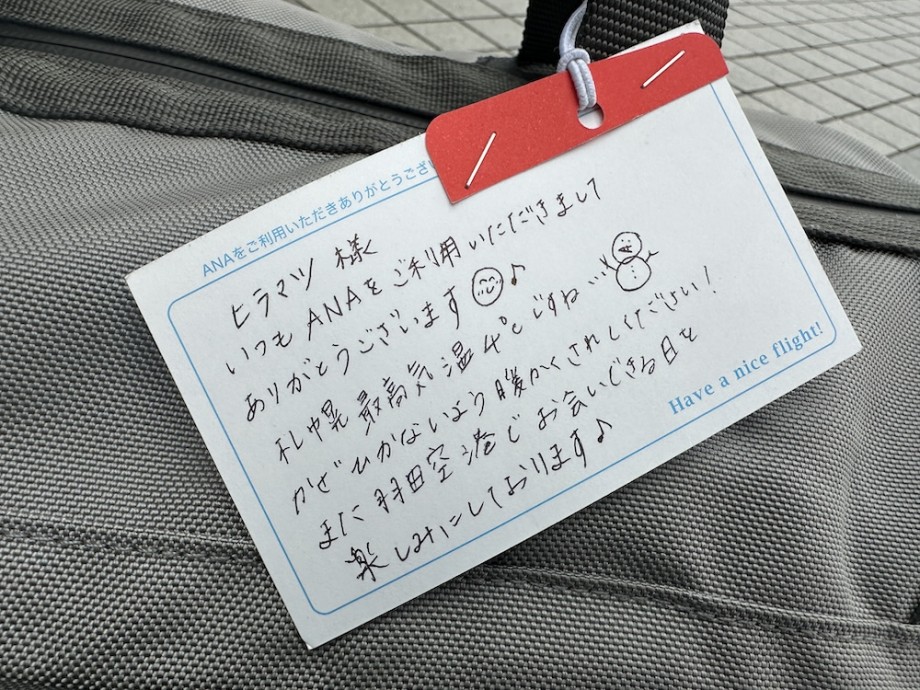 ANAをご利用いただきありがとうござい
ヒラマツ 様
いつも ANAを ご利用 いただきまして
ありがとうございます ♪
札幌 最高気温 4℃ ですね…
かぜひかないよう 暖かくされてください！
また 羽田空港で お会いできる日を
楽しみにしております♪
Have a nice flight!